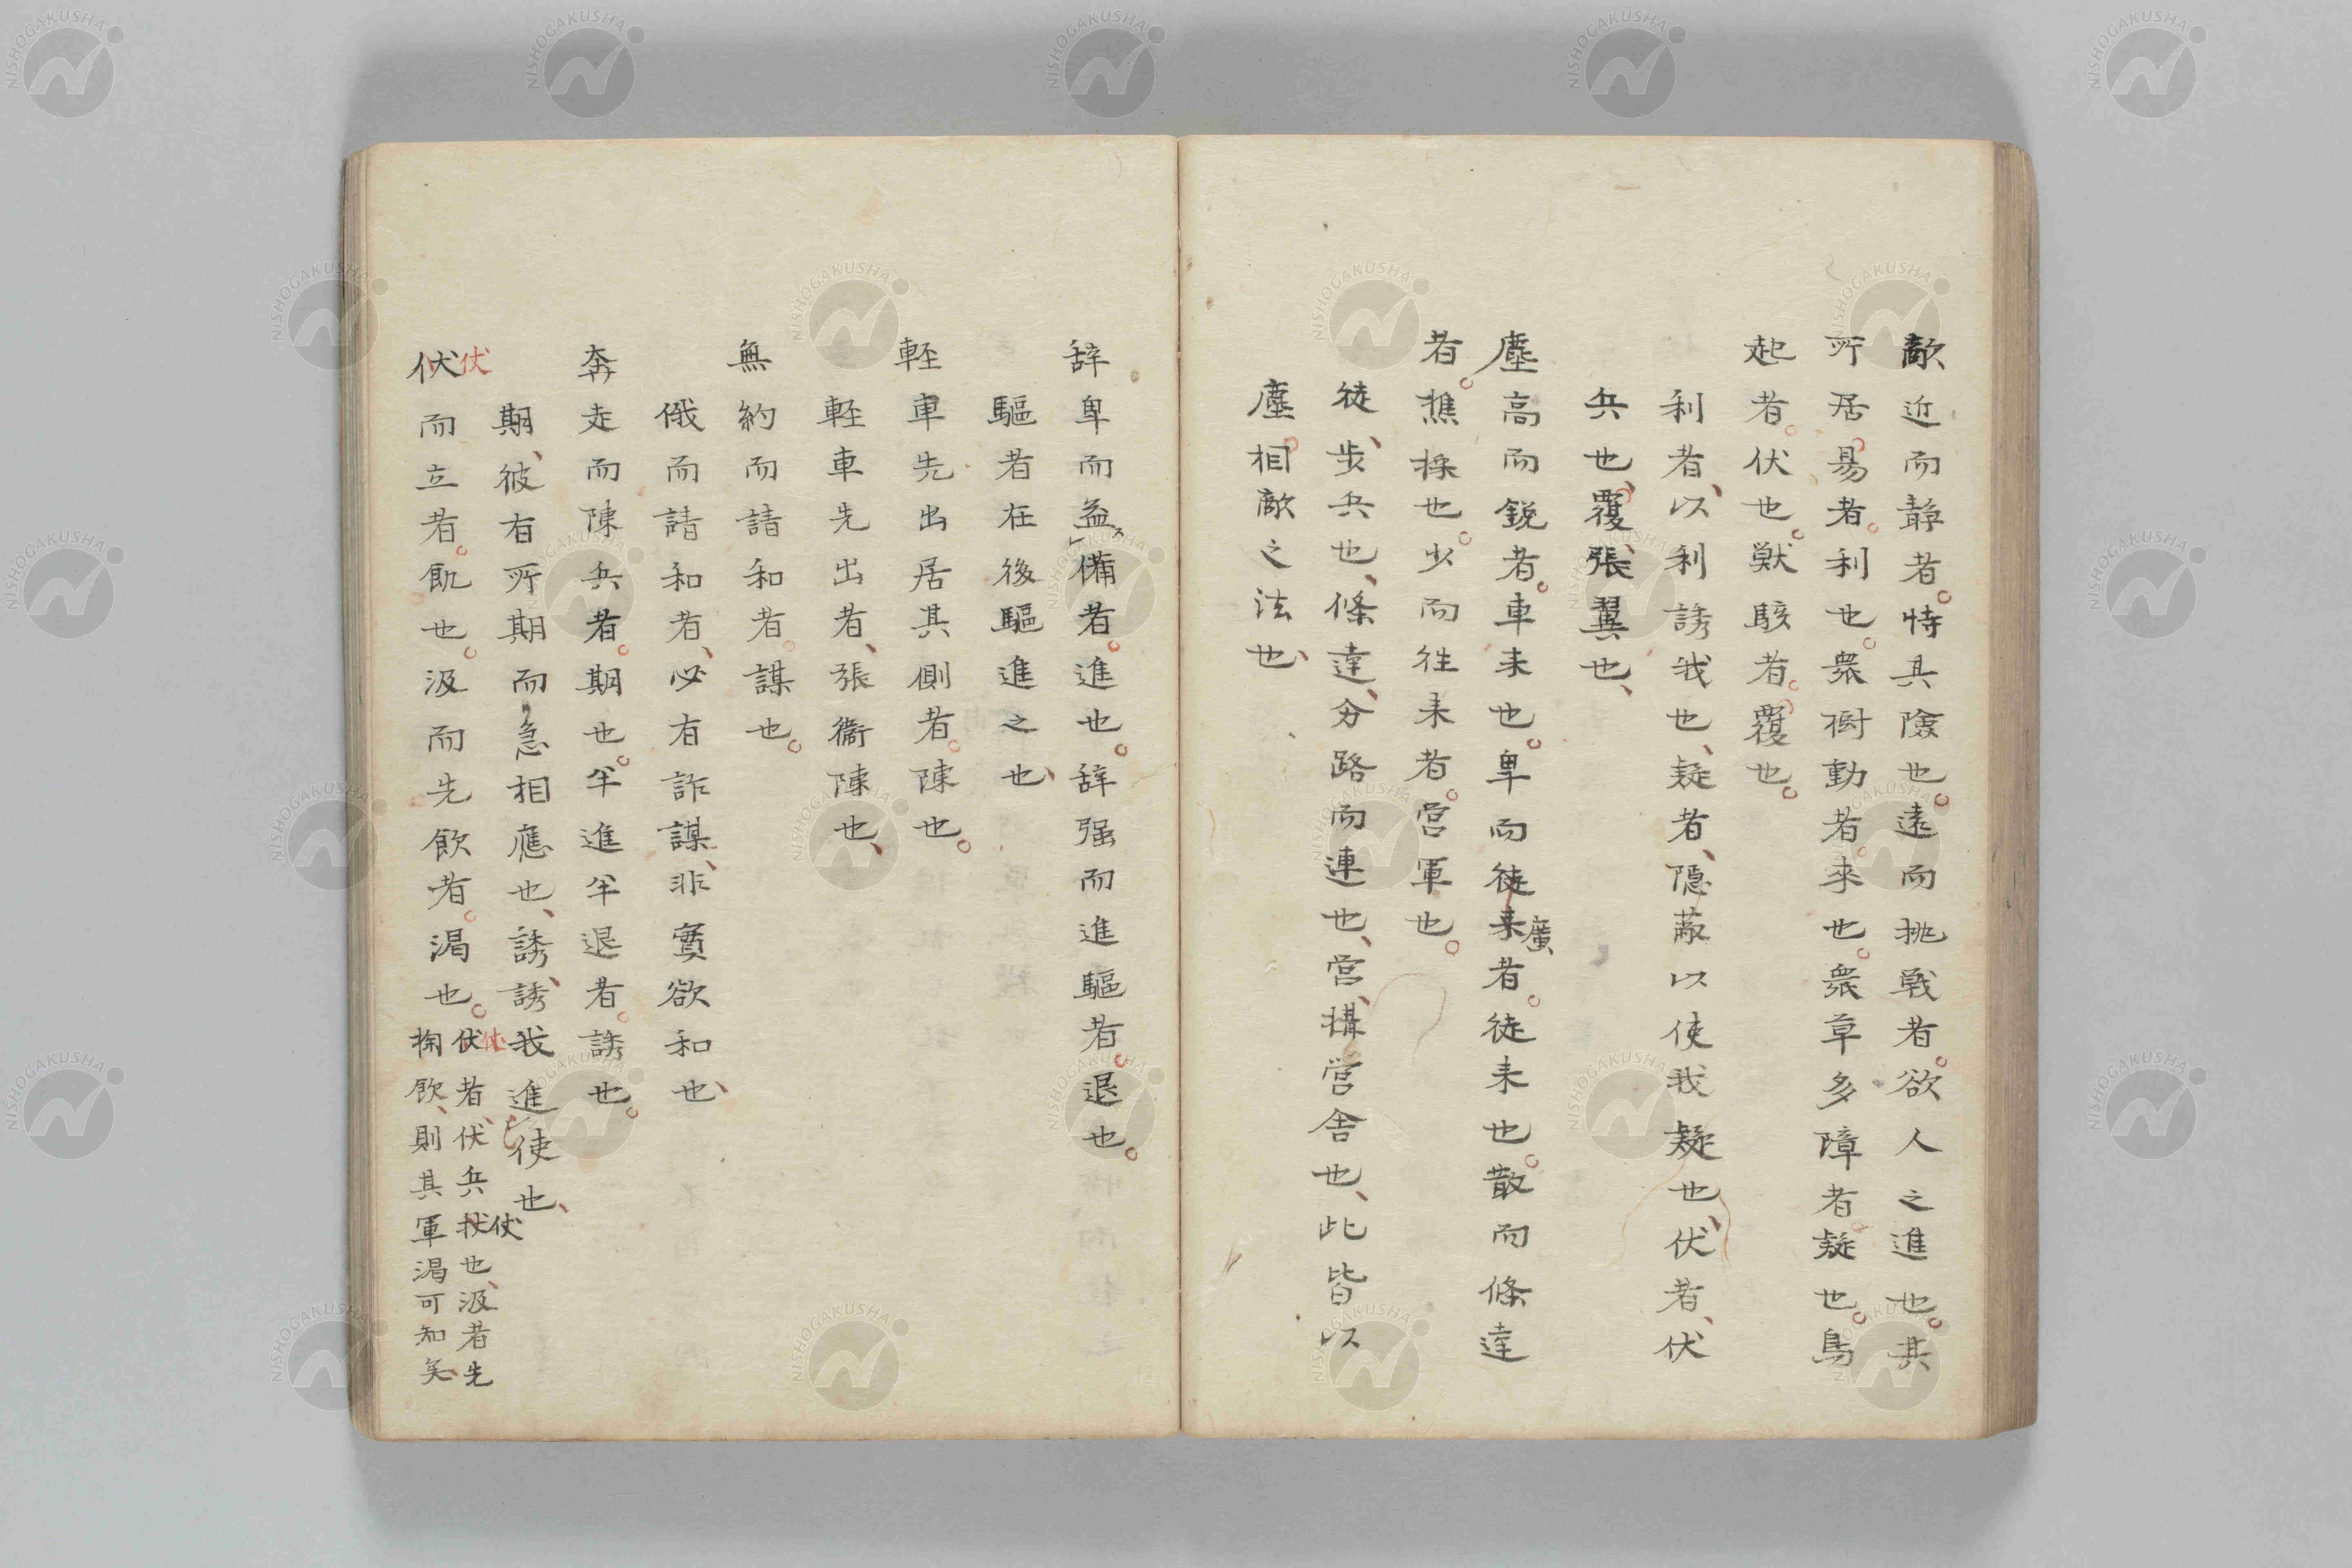 敵近而静者。恃其險也。遠而挑戦者。欲人之進也。其
所居。易者。利也。衆樹動者。來也。衆草多障者。疑也。鳥
起者。伏也。獣駭者。覆也。
利者、以利誘我也、疑者、隠蔽以使我疑也、伏者、伏
兵也、覆、張翼也、
塵高而鋭者。車来也。卑而徒来者。徒来也。散而條達
廣
者。樵採也。少而往来者。営軍也。
徒、歩兵也、條達、分路而連也、営、構営舎也、此皆以
塵。相敵之法也、
辞卑而益備者。進也。辞强而進驅者。退也。
驅者在後驅進之也、
軽車先出居其側者。陳也。
軽車先出者、張衞陳也、
無約而請和者。謀也。
俄而請和者、必有詐謀、非實欲和也、
奔走而陳兵者。期也。半進半退者。誘也。
期、彼有所期而急相應也、誘、誘我進使也、
伏而立者。飢也。汲而先飲者。渇也。
伏
伏者、伏兵扙也、汲者先
仗
仗
掬飲、則其軍渇可知矣、
NISHOGAKUSHA